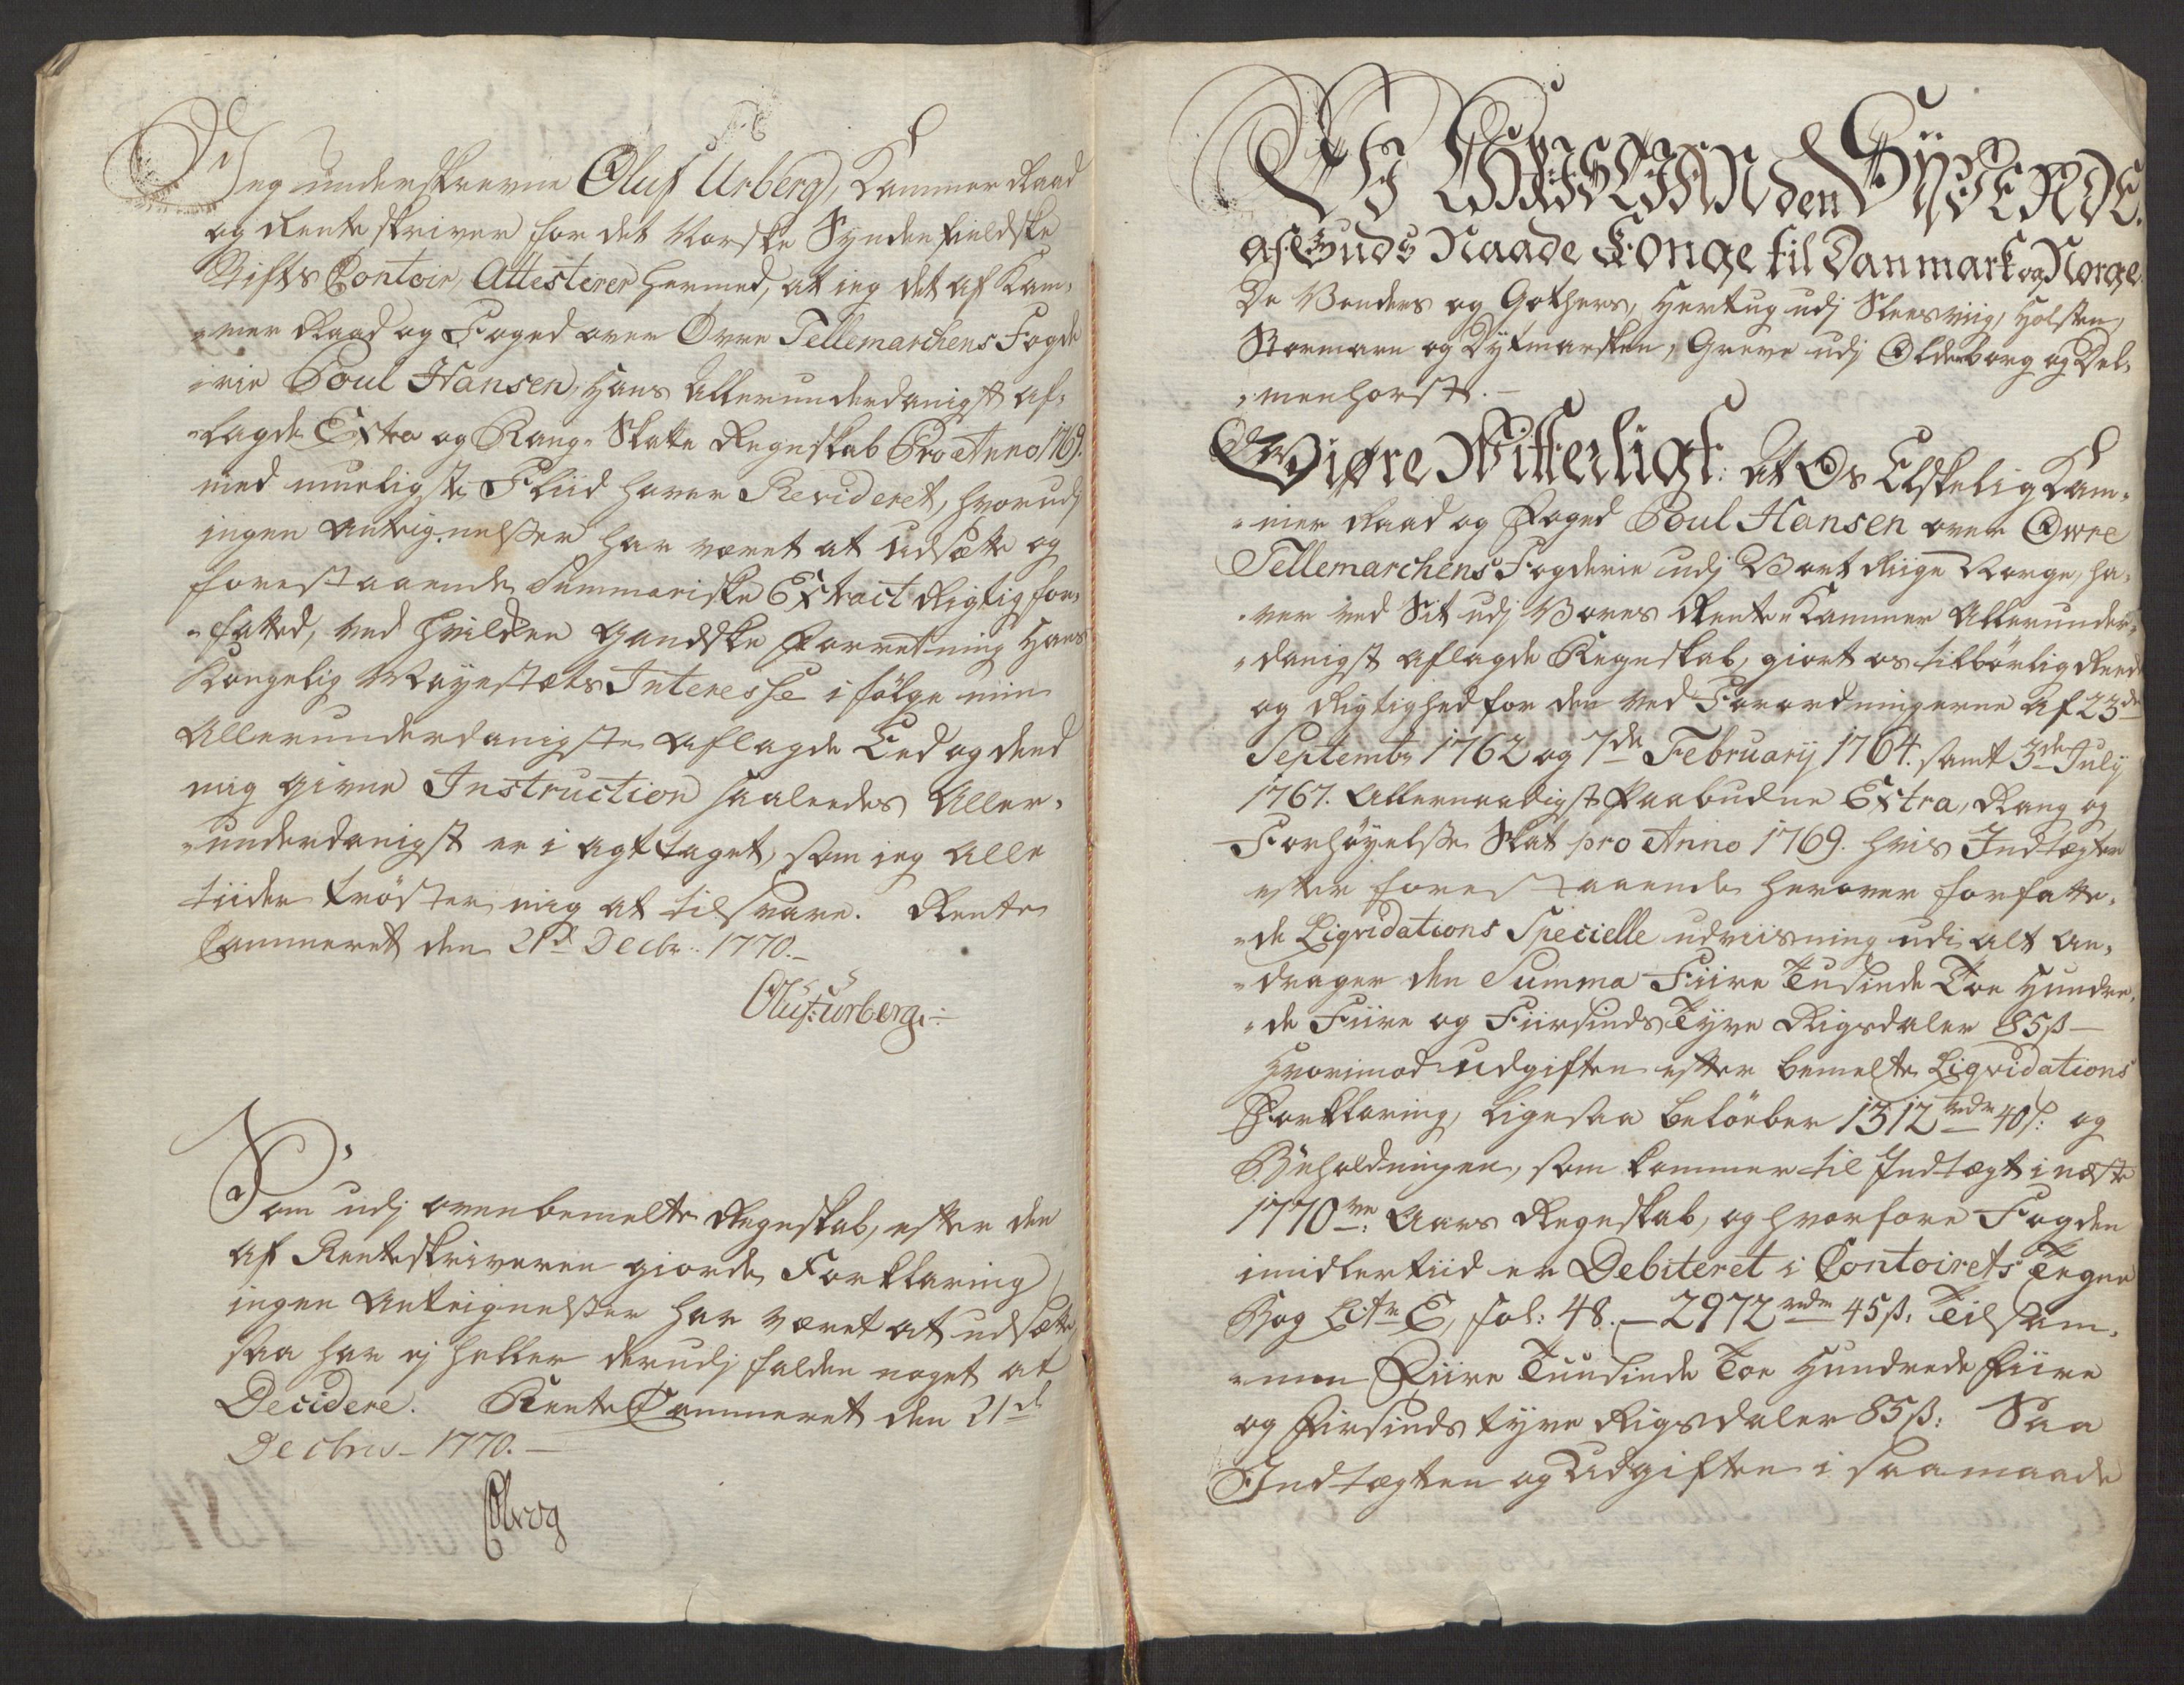 Jeg underskrevne Oluf Urberg, Kammer Raad
og Renteskriver for det Norske Syndenfieldske
Stifts Contoir, Attesterer hermed, at jeg det af Kam-
-mer Raad og Foged over Øvre Tellemarchens Fogde
-rie Poul Hansen, Hans Allerunderdanigst af-
-lagde Extra og Rang-Skatte Regnskab Pro Anno 1769.
med mueligste Fliid haver Revideret, hvorudj
ingen Antegnelsser har været at udsætte og
forestaaende Summariske Extract Rigtig for-
-fatted, ved hvilken gandske Forretning Hans
Kongelig Mayestæts Interesse i følge min
Allerunderdanigste aflagde Eed og dend
mig givne Instruction saaleedes Aller-
-underdanigst er i agt taget, som jeg Alle
tiider trøster mig at tilsvare. Rente
Cammeret den 21d Decbr: 1770.-
Oluf: Urberg.-
Som udj ovenbemelte Regnskab, efter den
af Renteskriveren giorde Forklaring
ingen Antegnelsser har været at udsætte
saa har ej heller derudj falden noget at
Decidere. Rente Cammeret den 21d
Decbru- 1770.-
Vj CHRISTIAN den SYVENDE.
af Guds Naade Konge til Danmark og Norge
De Venders og Gothers, Hertug udj Sleesviig, Holsten,
Stormarn og Dytmarsken, Greve udj Oldenborg og Del-
-menhorst.-
Giøre Witterligt: at Os Elskelig Kam-
-mer Raad og Foged Poul Hansen over Øvre
Tellemarchens Fogderie udj Vort Riige Norge, ha-
-ver ved Sit udj Vores Rente-Kammer Allerunder-
-danigst aflagde Regnskab, giort os tilbørlig Reede
og Rigtighed for den ved Forordningerne af 23de
Septembr 1762 og 7de Februarij 1764. samt 3de July
1767. Allernaadigst Paabudne Extra, Rang og
Forhøyelse Skat pro Anno 1769. hvis Indtægter
efter forestaaende herover forfatte-
-de Liqvidations Specielle udviisning udi alt an-
-drager den Summa Fiire Tusinde Toe Hundre-
-de Fiire og Fiirsinds Tyve Rigsdaler 85ß-
Hvorimod udgiften efter bemelte Liqvidations
Forklaring, ligesaa beløeber 1312 rdr 40ß: og
Beholdningen, som kommer til Indtægt i næste
1770ve: Aars Regnskab, og hvorfore Fogden
imidlertiid er Debiteret i Contoirets Tegne
Bog Litr E, fol: 48.- 2972 rdr 45ß, Tilsam-
-men Fiire Tuusinde Toe Hundrede Fiire
og Fiirsinds tyve Rigsdaler 85ß: Saa
Indtægten og Udgiften i saamaade